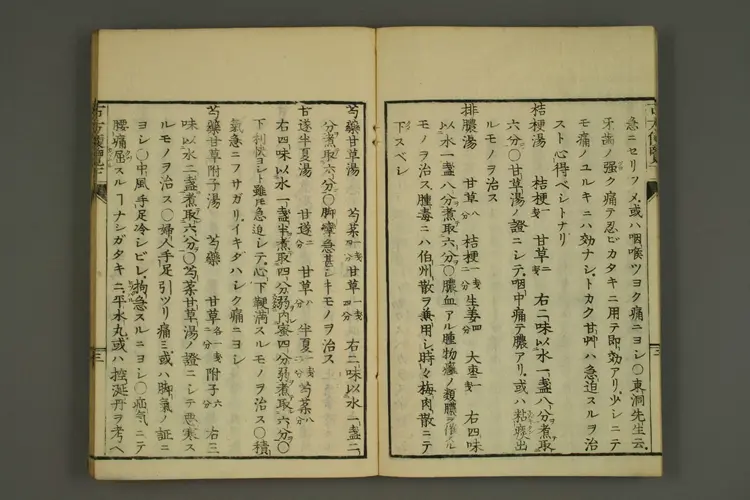 急ニセリツメ或ハ咽喉ツヨク痛ニヨシ〇東洞先生云
牙歯ノ強ク痛テ忍ビカタキニ用テ即効アリ少シニテ
モ痛ノユルキニハ効ナシトカク甘艸ハ急迫スルヲ治
スト心得ベシトナリ
桔梗湯 桔梗一戔 甘草二戔 右二味以水一盞八分煮取
六分〇甘草湯ノ證ニシテ咽中痛テ膿アリ或ハ粘痰出
ルモノヲ治ス
排膿湯 甘草八分 桔梗一戔二分 生姜四分 大棗一戔 右四味
以水一盞八分煮取六分〇膿血アル腫物瘍ノ類膿ニ作ル
モノヲ治ス腫毒ニハ伯州散ヲ兼用シ時々梅肉散ニテ
下スベシ
芍藥甘草湯 芍藥一戔四分 甘草一戔四分 右二味以水一盞二
分煮取六分〇脚攣急甚シキモノヲ治ス
甘遂半夏湯 甘遂二分 甘草八分 半夏一戔二分 芍藥八分
右四味以水一盞半煮取四分弱内蜜四分弱煮取六分〇
下利快ヨシト雖𪜈急迫シテ心下鞕満スルモノヲ治ス〇積
氣急ニフサガリイキダハシク痛ニヨシ
芍藥甘草附子湯 芍藥 甘草各一戔二分 附子六分 右三
味以水二盞煮取六分〇芍藥甘草湯ノ證ニシテ悪寒ス
ルモノヲ治ス〇婦人手足引ツリ痛ミ或ハ脚氣ノ証ニ
ヨシ〇中風手足冷シビレ拘急スルニヨシ〇疝氣ニテ
腰痛屈スルヿナシガタキニ平水丸或ハ控涎丹ヲ考ヘ
三